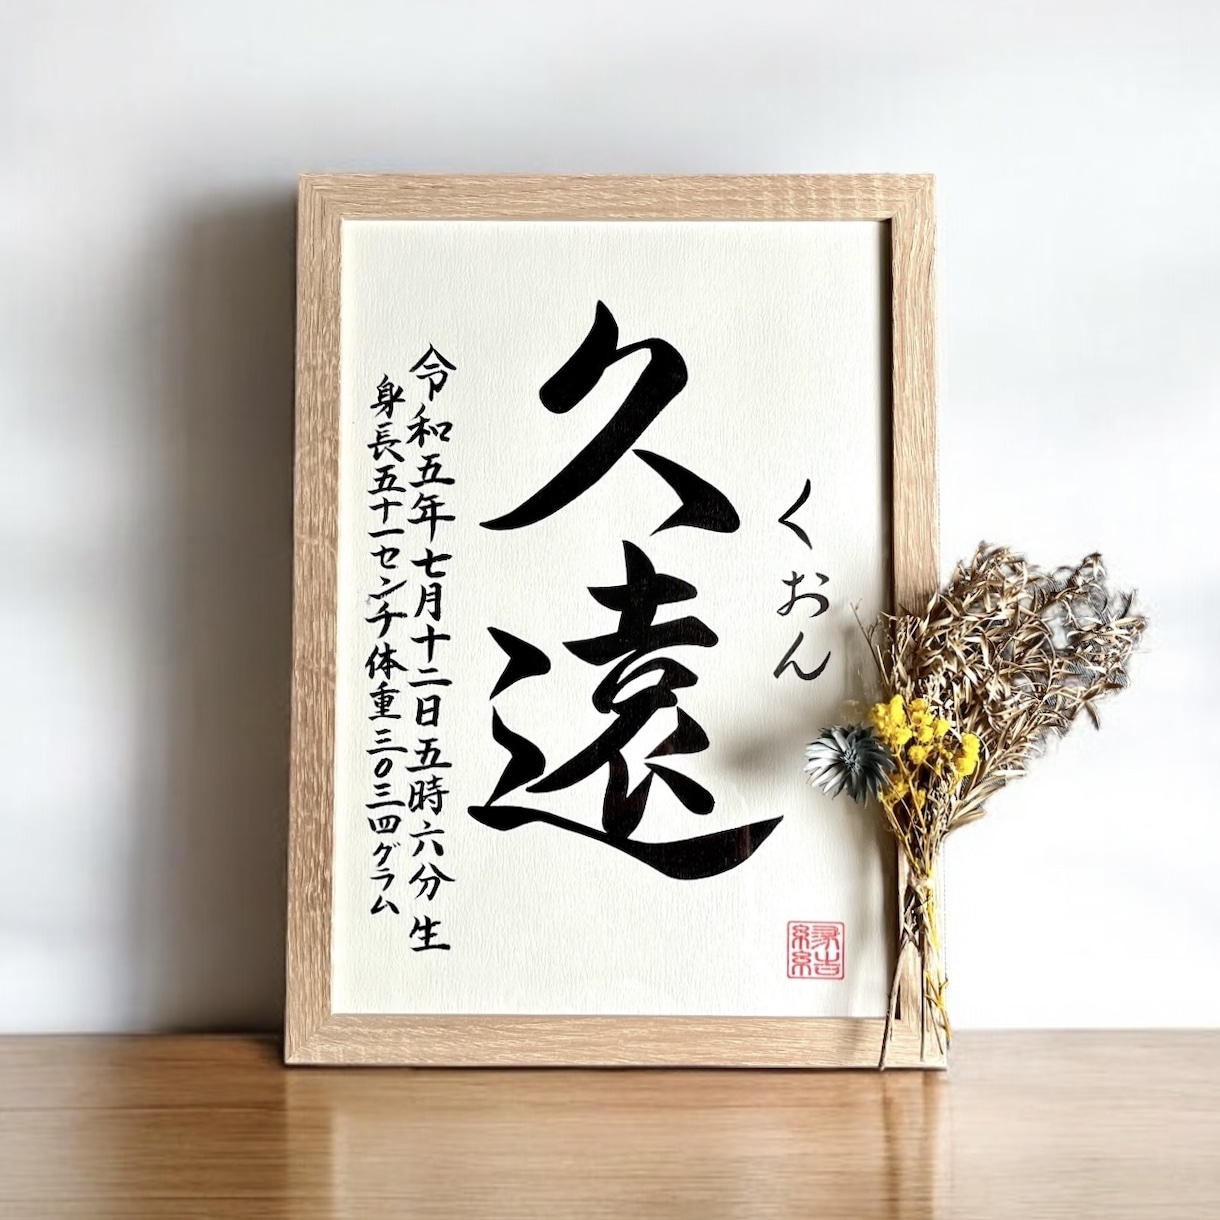 くおん
久遠
令和五年七月十二日五時六分生
身長五十一センチ体重三〇三四グラム
縁結